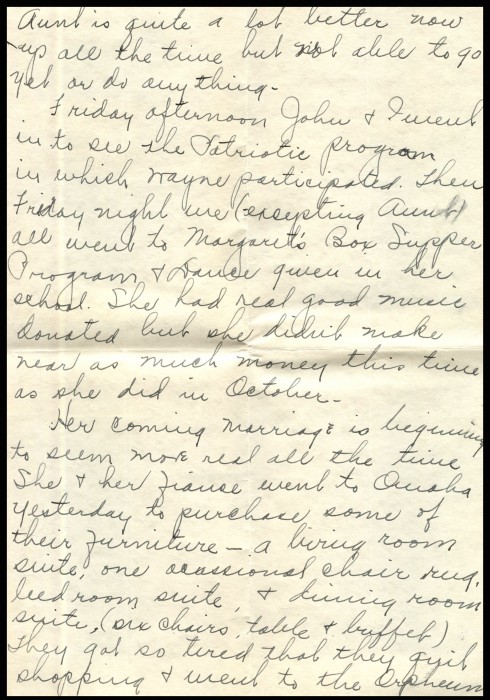 Aunt is quite a lot better now
up all the time but not able to go
yet or do anything.
Friday afternoon John & I went
in to see the Patriotic program
in which Wayne participated. Then
Friday night we (excepting Aunt)
all went to Margaret's Box Supper
Program & Dance given in her
school. She had real good music
donated but she didn't make
near as much money this time
as she did in October.
Her coming marriage is beginning
to seem more real all the time
She & her fianse went to Omaha
yesterday to purchase some of
their furniture - a living room
suite, one ocassional chair rug,
bed room suite, & dining room
suite, (six chairs, table & buffet)
They got so tired that they quit
shopping & went to the Orpheum